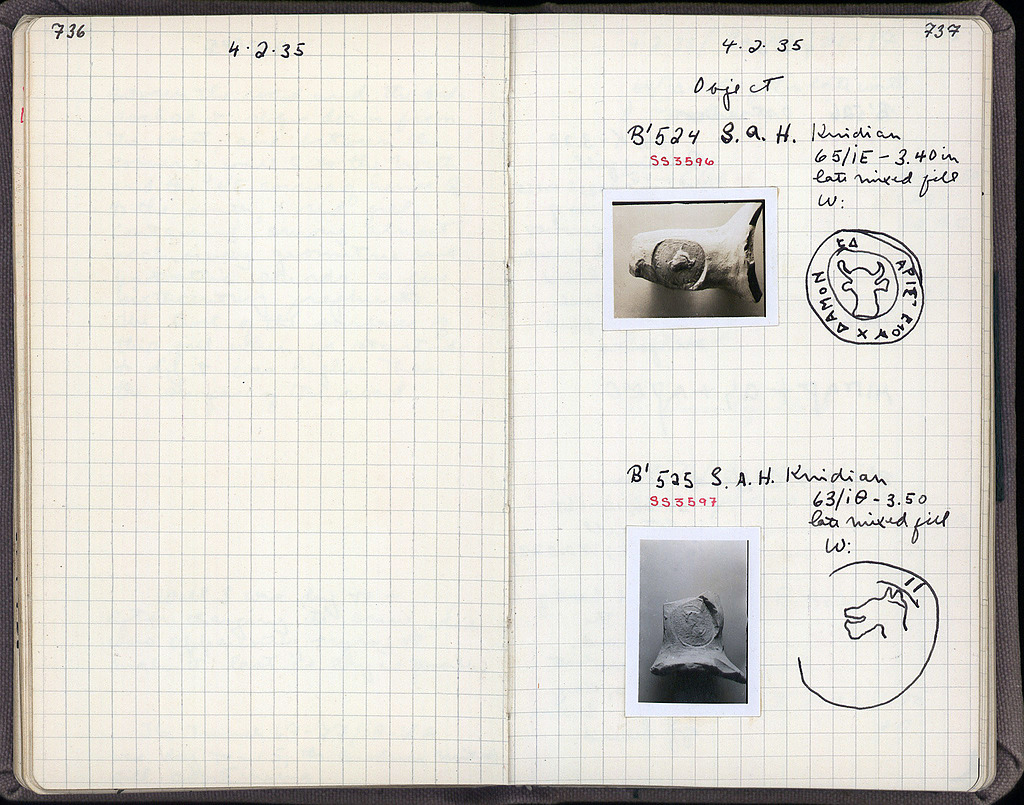 736
4·2·35
737
4·2·35
Object
B'524 S.A.H. Knidian
SS3596
65/ΙΕ - 3.40 in
late mixed fill
W:
B'525 S.A.H. Knidian
SS3597
63/ΙΘ - 3.50
late mixed fill
W: